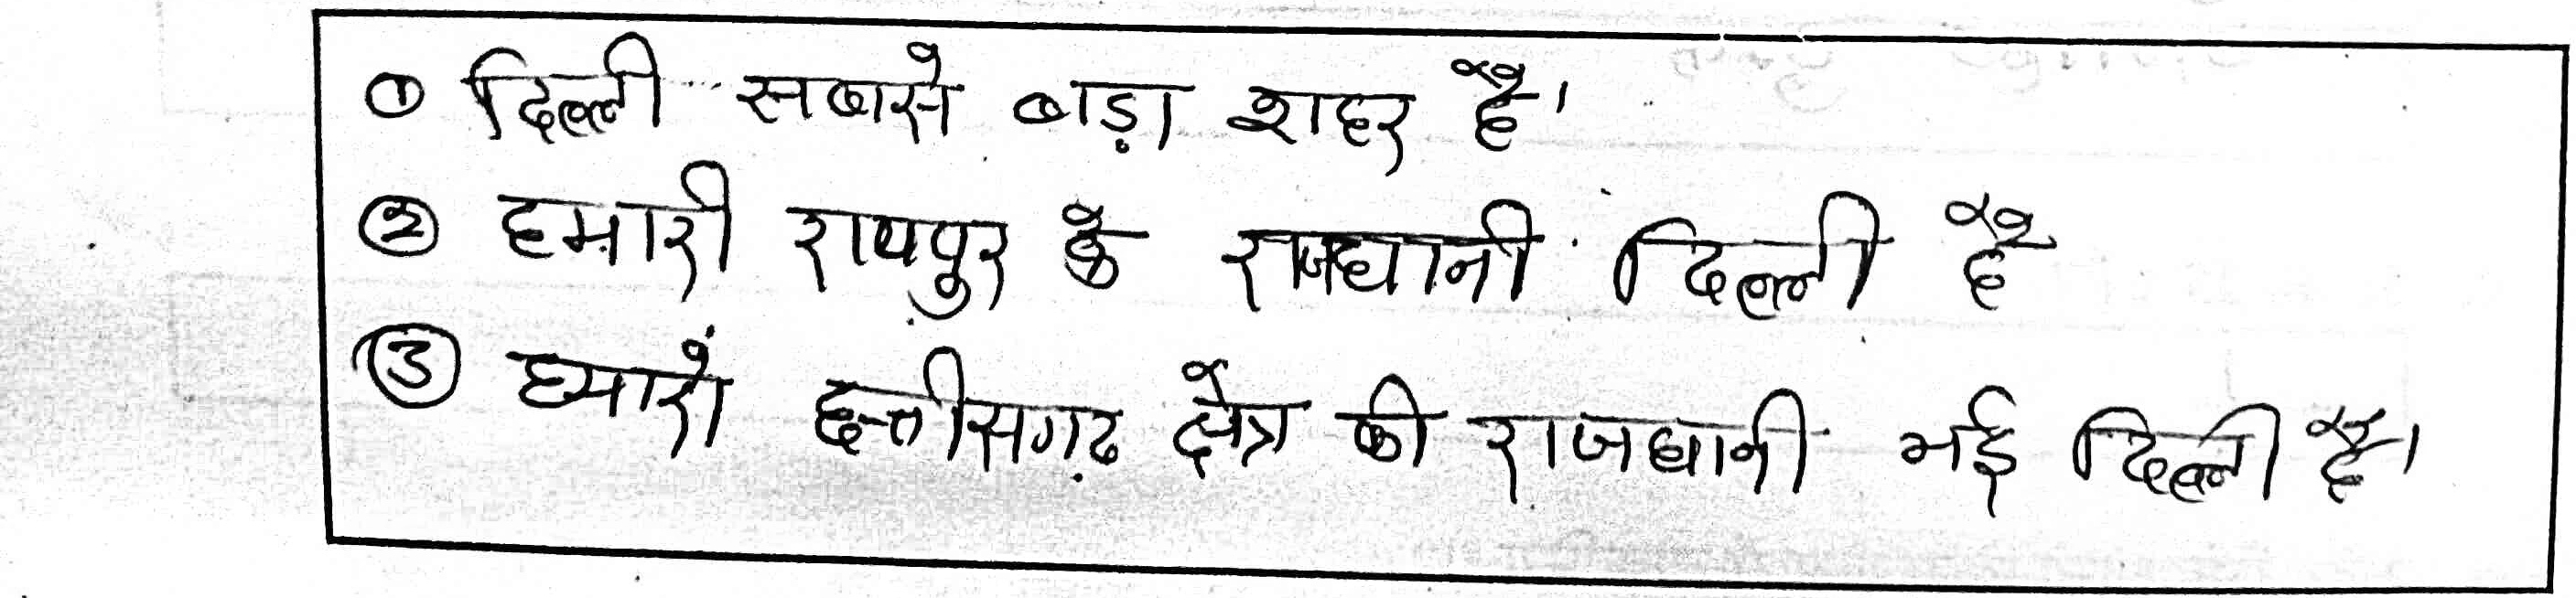 ① दिल्ली सबसे बाड़ा शहर है।
② हमारी रायपुर के राजधानी दिल्ली है
③ हमारो छत्तीसगढ़ क्षेत्र की राजधानी नई दिल्ली है।